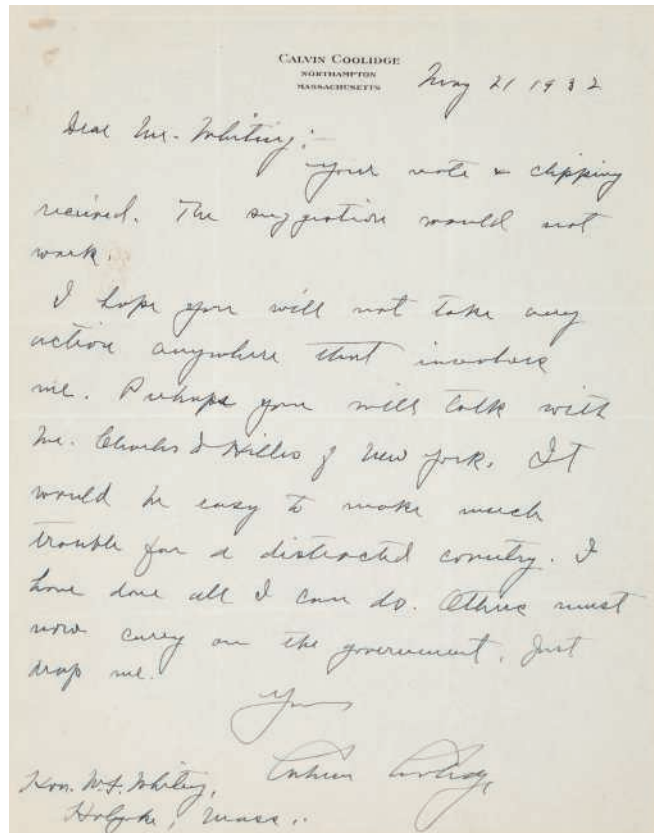 CALVIN COOLIDGE
NORTHAMPTON
MASSACHUSETTS
May 21 1932
Dear Mr. Whiting:-
Your note & clipping
received. The suggestion would not
work.
I hope you will not take any
action anywhere that involves
me. Perhaps you will talk with
Mr. Charles D Hilles of New York. It
would be easy to make much
trouble for a distracted country. I
have done all I can do. Others must
now carry on the government. Just
drop me.
Yours
Calvin Coolidge
Hon. W.F. Whiting,
Holyoke, Mass..